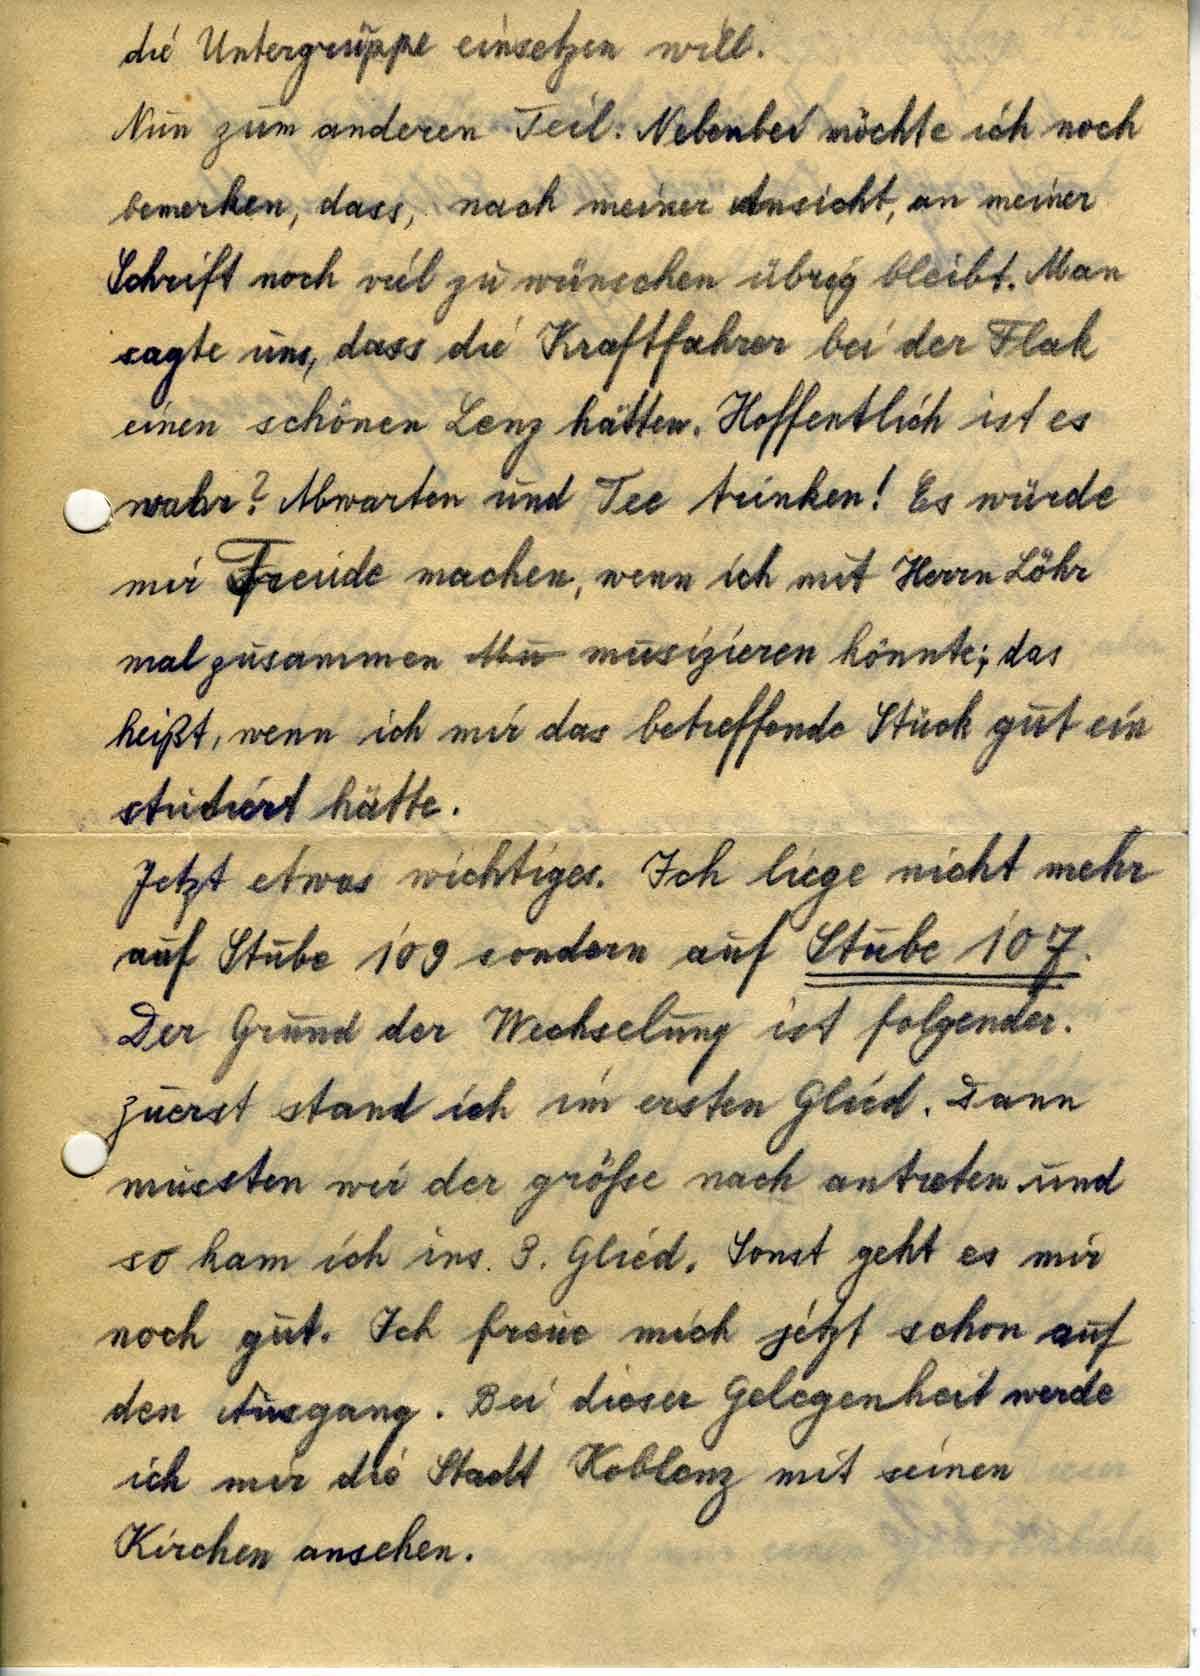 die Untergruppe einsetzen will.
Nun zum anderen Teil. Nebenbei möchte ich noch
bemerken, dass, nach meiner Ansicht, an meiner
Schrift noch viel zu wünschen übrig bleibt. Man
sagte uns, dass die Kraftfahrer bei der Flak
einen schönen Lenz hätten. Hoffentlich ist es
wahr? Abwarten und Tee trinken! Es würde
mir Freude machen, wenn ich mit Herrn Löhr
mal zusammen Mu musizieren könnte; das
heißt, wenn ich mir das betreffende Stück gut ein
studiert hätte.
Jetzt etwas wichtiges. Ich liege nicht mehr
auf Stube 109 sondern auf Stube 107.
Der Grund der Wechselung ist folgender.
zuerst stand ich im ersten Glied. Dann
mussten wir der größe nach antreten und
so kam ich ins 3. Glied. Sonst geht es mir
noch gut. Ich freue mich jetzt schon auf
den Ausgang. Bei dieser Gelegenheit werde
ich mir die Stadt Koblenz mit seinen
Kirchen ansehen.